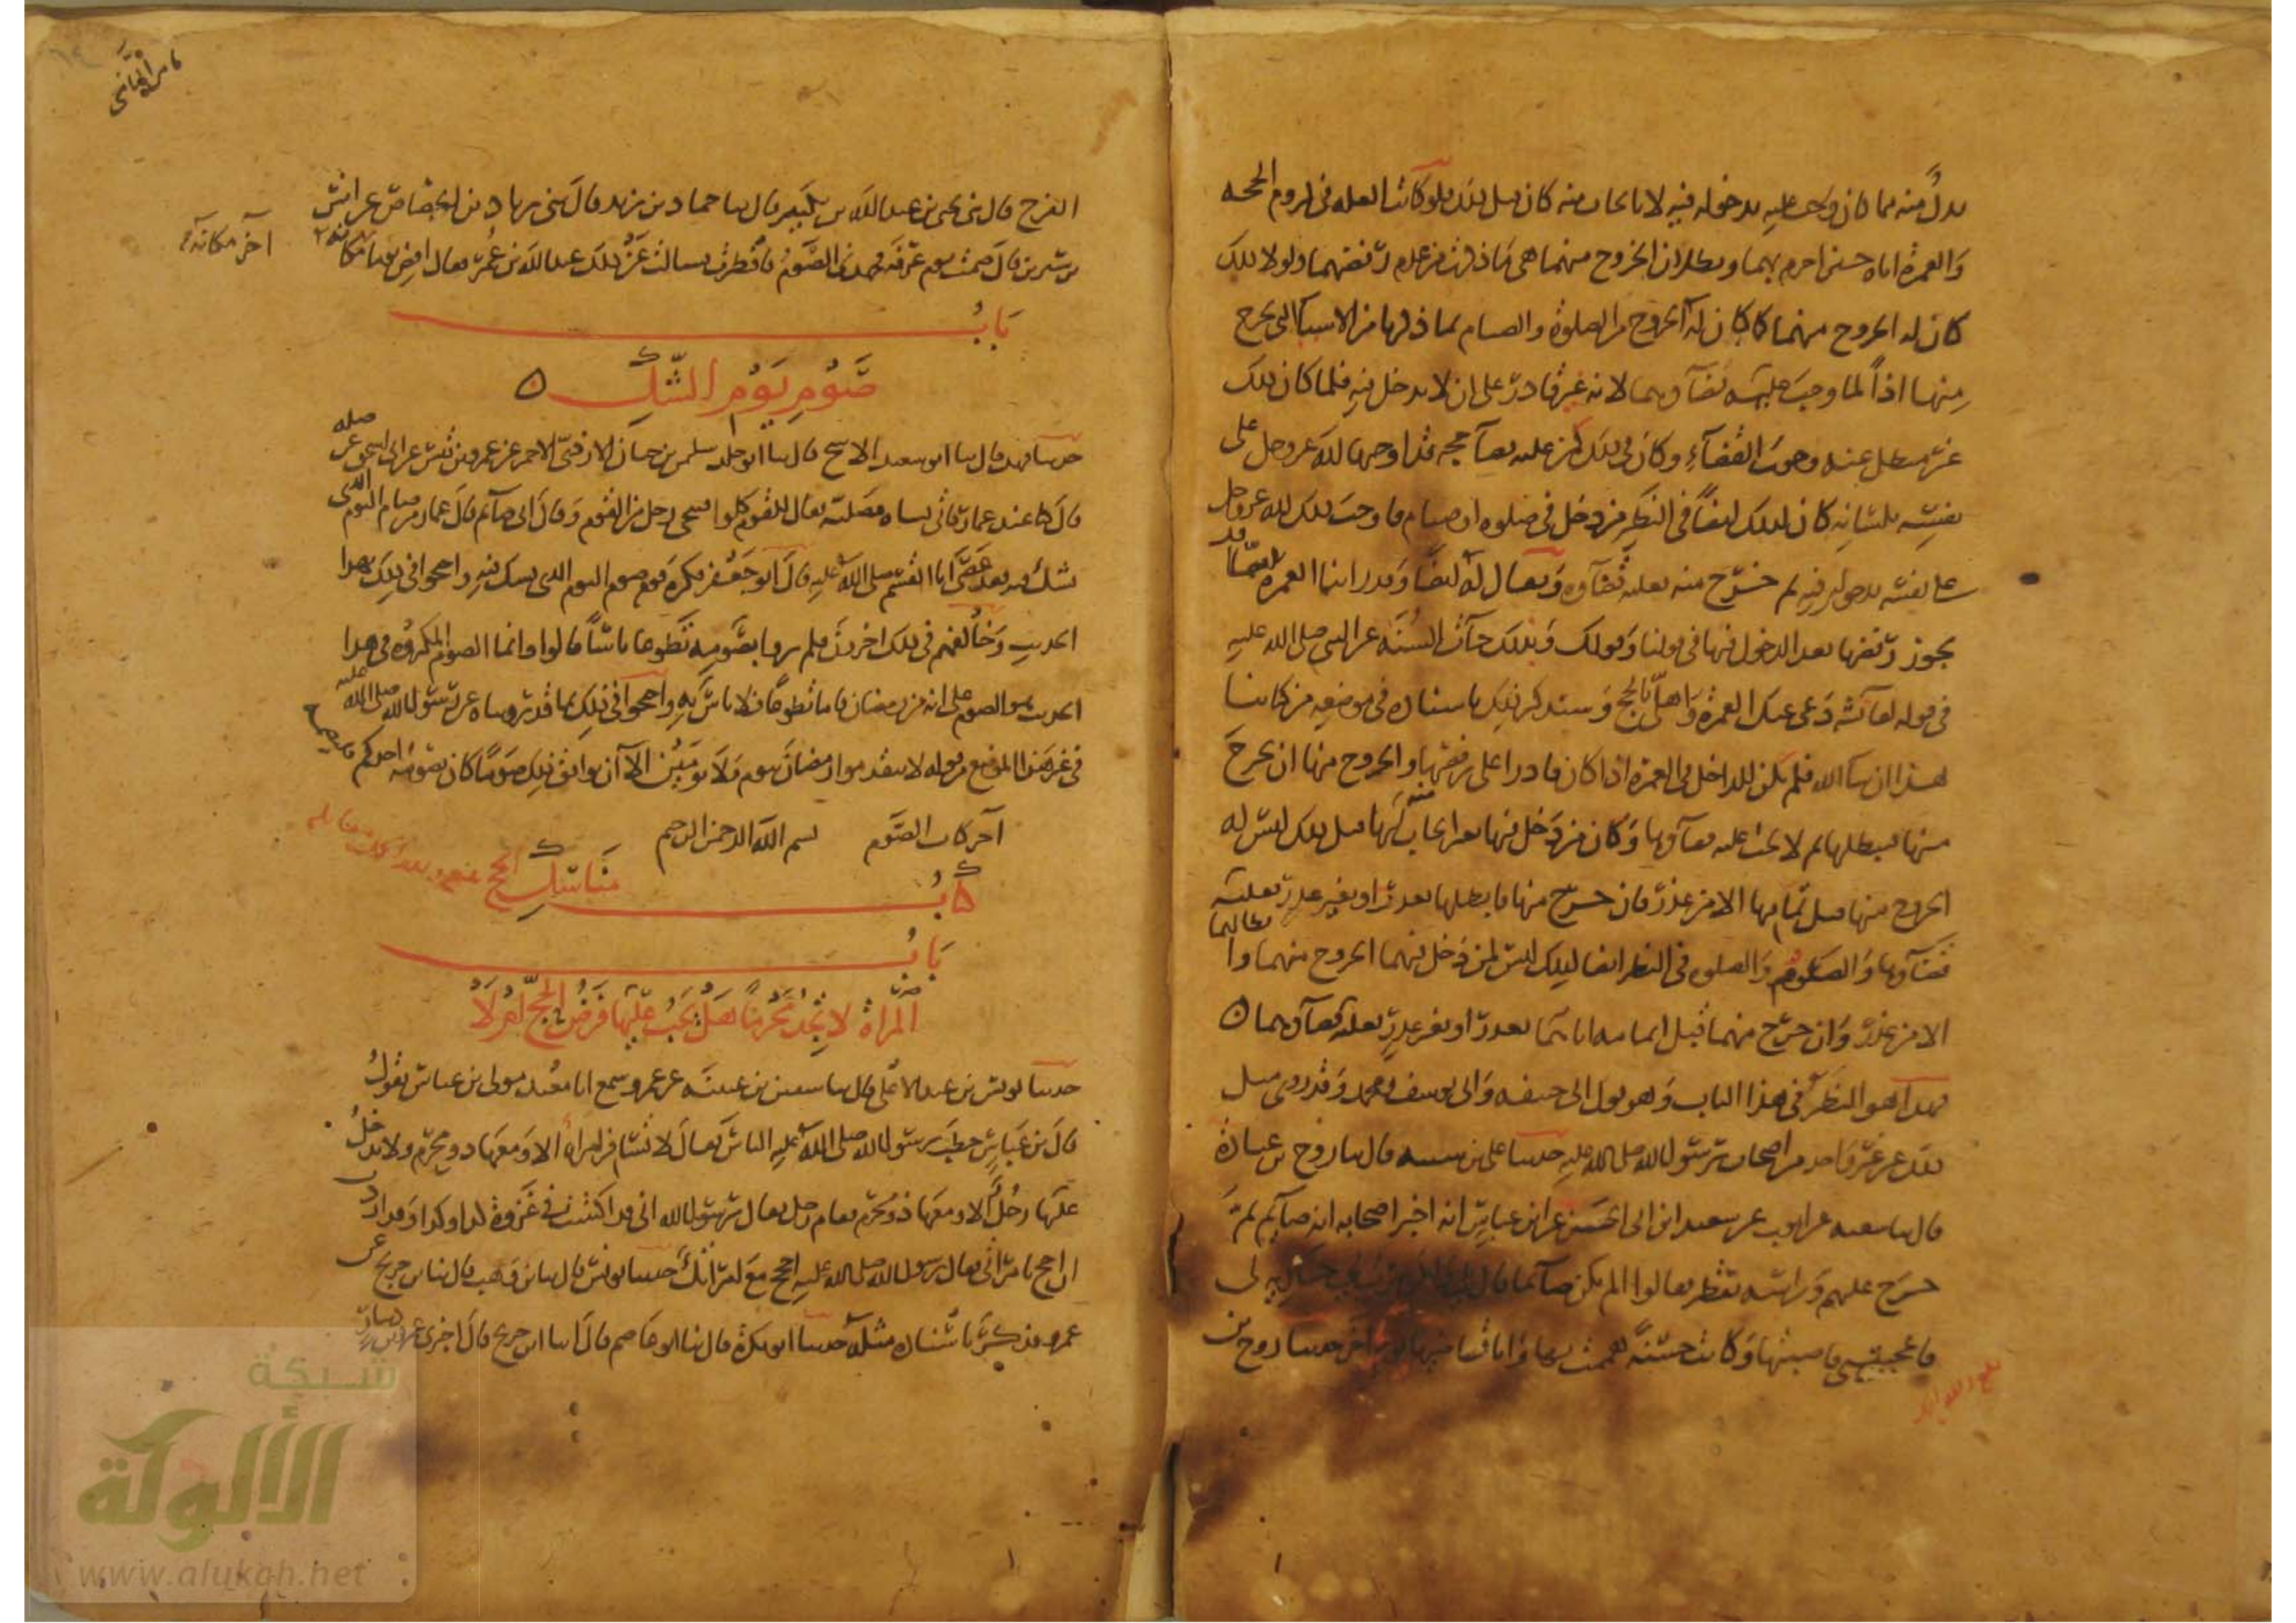 بدل منه مما كان وجب عليه بدخوله فيه لا بايجاب منه كان قبل ذلك فلو كانت العلة فى لزوم الحجة
والعمرة اياه حين احرم بهما وبطلان الخروج منهما هى ما ذكرت من عدم رفضهما ولولا ذلك
كان له الخروج منهما كما كان له الخروج من الصلوة والصيام بما ذكرنا من الاسباب التى تخرج
منها اذاً لما وجب عليه قضآوهما لانه غير قادر على ان لا يدخل فيه فلما كان ذلك
غير مبطل عنه وجوب القضآء وكان فى ذلك كمن عليه قضآ حجة قد اوجبها لله عز وجل على
نفسه بلسانه كان كذلك ايضاً فى النظر من دخل فى صلوة او صيام فاوجب ذلك لله عز وجل
على نفسه بدخوله فيه ثم خرج منه فعليه قضآوه ويقال له ايضاً وقد راينا العمرة مما قد
يجوز رفضها بعد الدخول فيها فى قولنا وقولك وبذلك جآت السنة عن النبى صلى الله عليه
فى قوله لعآئشة دعى عنك العمرة واهلى بالحج وسنذكر ذلك باسناده فى موضعه من كتابنا
هذا ان شا الله فلم يكن للداخل فى العمرة اذا كان قادرا على رفضها والخروج منها ان يخرج
منها فيبطلها ثم لا يجب عليه قضآوها وكان من دخل فيها بغير ايجاب منه لها قبل ذلك ليس له
الخروج منها قبل تمامها الا من عذر فان خرج منها فابطلها بعذر او بغير عذر فعليه
قضآوها والصلوة والصوم فى النظر ايضا كذلك ليس لمن دخل فيهما الخروج منهما وابطالهما
الا من عذر وان خرج منهما قبل اتمامه اياهما بعذر او بغير عذر فعليه قضآوهما ٥
فهذا هو النظر فى هذا الباب وهو قول ابى حنيفة وابى يوسف ومحمد وقد روى مثل
ذلك عن غير واحد من اصحاب رسول الله صلى الله عليه حدثنا على بن شيبة قال ثنا روح بن عبادة
قال ثنا سعيد عن ايوب عن سعيد ابن ابى الحسن عن ابن عباس انه اخبر اصحابه انه صآئم ثم
خرج عليهم وراسه يقطر فقالوا الم تكن صآئما قال بلى ولكن مرت بى جارية لى
فاعجبتنى فاصبتها وكانت حسنة هممت بها وانا قاضيها يوما اخر حدثنا روح بن
الفرج قال ثنى يحيى بن عبد الله بن بكير قال ثنا حماد بن زيد قال ثنى زياد بن الجصاص عن انس
بن سيرين قال صمت يوم عرفة فجهدنى الصوم فافطرت فسالت عن ذلك عبد الله بن عمر فقال اقض يوما مكانه
آخر مكانه
باب
صوم يوم الشك ٥
حدثنا فهد قال ثنا ابو سعيد الاشج قال ثنا ابو خلد سليمن بن حيان الازدى الاحمر عن عمرو بن قيس عن ابى اسحق عن صلة
قال كنا عند عمار فاتى بشاة مصلية فقال للقوم كلوا فتنحى رجل من القوم وقال انى صآئم قال عمار من صام اليوم الذى
يشك فيه فقد عصى ابا القسم صلى الله عليه قال ابو جعفر فكره قوم صوم اليوم الذى يشك فيه واحتجوا فى ذلك بهذا
الحديث وخالفهم فى ذلك اخرون فلم يروا بصومه تطوعا باساً قالوا وانما الصوم المكروه فى هذا
الحديث هو الصوم على انه من رمضان فاما تطوعاً فلا باس به واحتجوا فى ذلك بما قد رويناه عن رسول الله صلى الله عليه
فى غير هذا الموضع من قوله لا تتقدموا رمضان بيوم ولا يومين الا ان يوافق ذلك صوماً كان يصومه احدكم فليصمه
آخر كتاب الصوم بسم الله الرحمن الرحيم
كتاب مناسك الحج
باب
المراة لا تجد محرماً هل يجب عليها فرض الحج ام لا
حدثنا يونس بن عبد الاعلى قال ثنا سفين بن عيينة عن عمرو سمع ابا معبد مولى بن عباس يقول
قال بن عباس خطب رسول الله صلى الله عليه الناس فقال لا تسافر امراة الا ومعها ذو محرم ولا يدخل
عليها رجل الا ومعها ذو محرم فقام رجل فقال يا رسول الله انى قد اكتتبت فى غزوة كذا وكذا وقد اردت
ان احج بامراتى فقال رسول الله صلى الله عليه احجج مع امراتك حدثنا يونس قال ثنا بن وهب قال ثنا بن جريج عن
عمرو فذكر باسناده مثله حدثنا ابو بكرة قال ثنا ابو عاصم قال انا ابن جريج قال اخبرنى عمرو بن دينار
شبكة
الألوكة
www.alukah.net